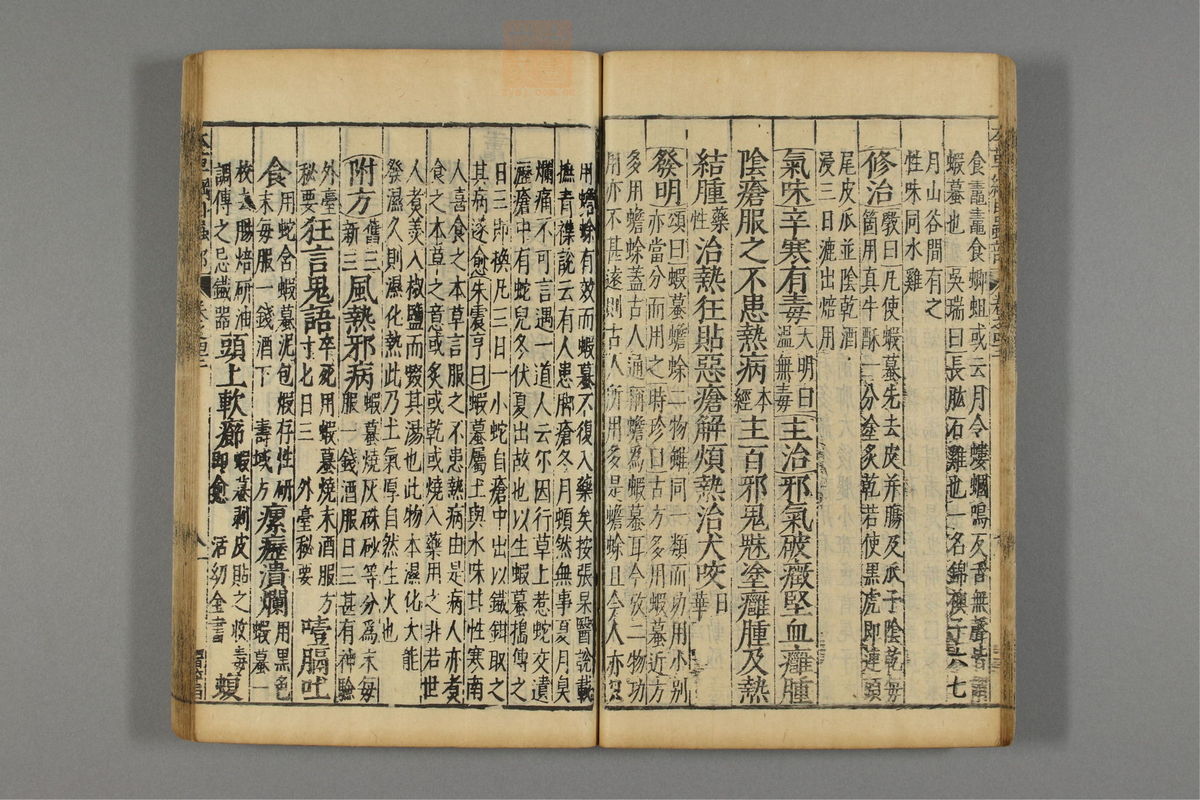 食蠹蠹食蝍蛆或云月令螻蟈鳴反舌無聲皆謂
蝦蟇也 吳瑞曰長肱石雞也一名錦襖子六七
月山谷間有之
性味同水雞
修治斅曰凡使蝦蟇先去皮并腸及爪子陰乾每
箇用真牛酥一分塗炙乾若使黑虎即連頭
尾皮爪並陰乾酒
浸三日漉出焙用
氣味辛寒有毒大明曰溫無毒主治邪氣破癥堅血癰腫
陰瘡服之不患熱病本經主百邪鬼魅塗癰腫及熱
結腫藥性治熱狂貼惡瘡解煩熱治犬咬日華
發明頌曰蝦蟇蟾蜍二物雖同一類而功用小別
亦當分而用之時珍曰古方多用蝦蟇近方
多用蟾蜍蓋古人通稱蟾為蝦蟇耳今攷二物功
用亦不甚遠則古人所用多是蟾蜍且今人亦只
用蟾蜍有效而蝦蟇不復入藥矣按張杲醫說載
撫青襍說云有人患脚瘡冬月頓然無事夏月臭
爛痛不可言遇一道人云尓因行草上惹蛇交遺
瀝瘡中有蛇兒冬伏夏出故也以生蝦蟇搗傅之
日三即換凡三日一小蛇自瘡中出以鐵鉗取之
其病遂愈朱震亨曰蝦蟇屬土與水味甘性寒南
人喜食之本草言服之不患熱病由是病人亦煮
食之本草之意或炙或乾或燒入藥用之非若世
人煮羹入椒鹽而啜其湯也此物本濕化大能
發濕久則濕化熱此乃土氣厚自然生火也
附方舊三新三風熱邪病蝦蟇燒灰硃砂等分為末每
服一錢酒服日三甚有神驗
外臺秘要狂言鬼語卒死用蝦蟇燒末酒服方
寸七日三 外臺秘要噎膈吐
食用蛇含蝦蟇泥包煅存性研
末每服一錢酒下 壽域方瘰癧潰爛用黑色蝦蟇一
枚去腸焙研油
調傅之忌鐵器頭上軟癤蝦蟇剥皮貼之收毒
即愈 活幼全書蝮